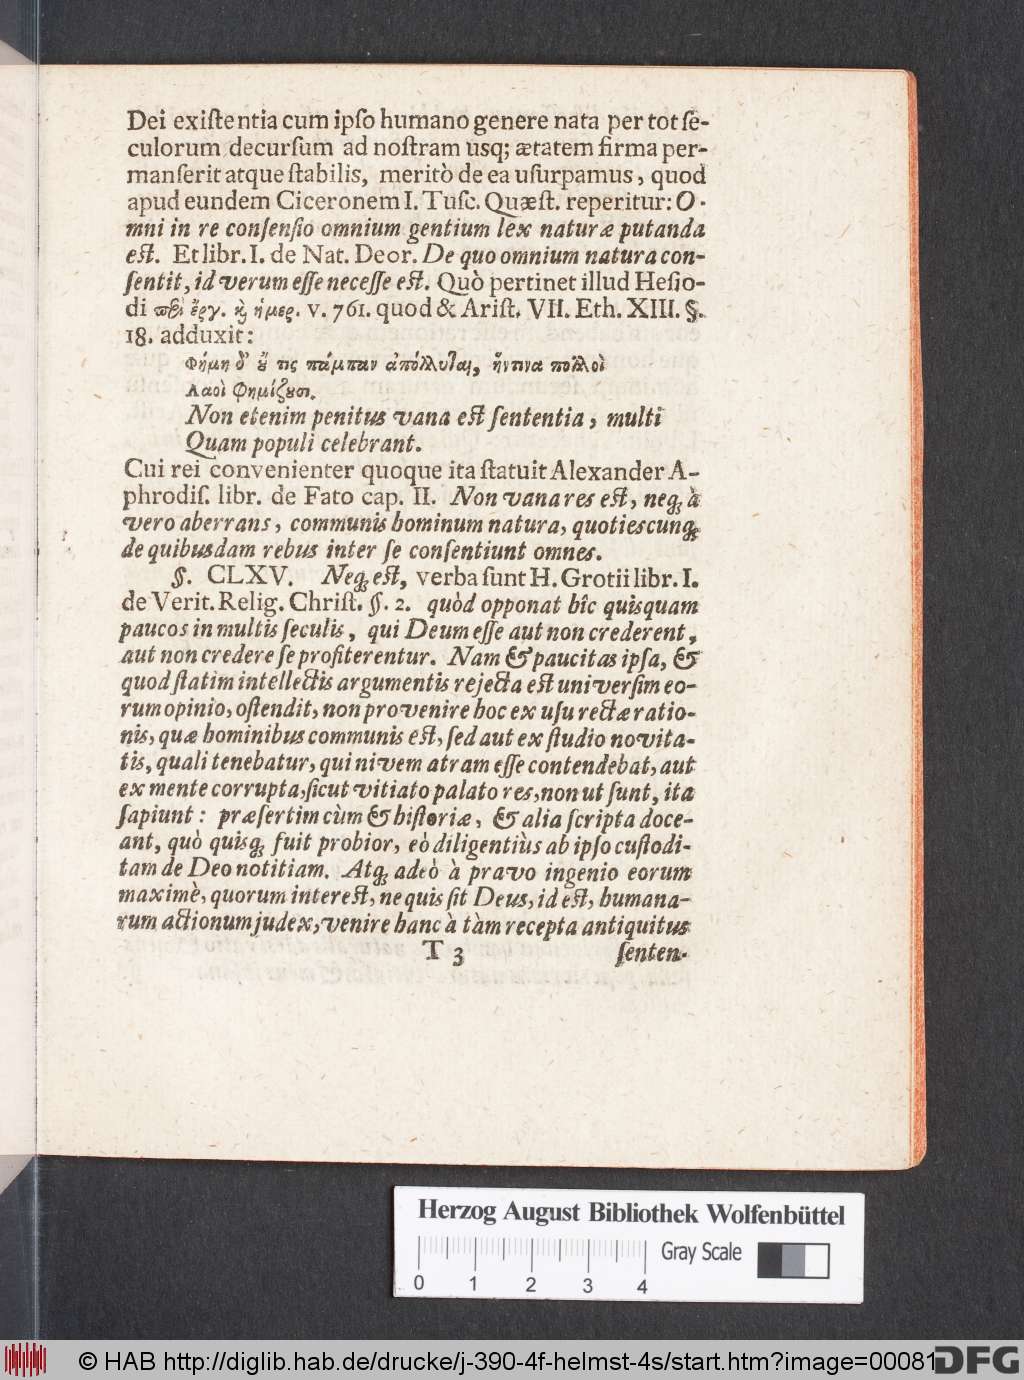 Dei exiſtentia cum ipſo humano genere nata per tot ſe-
culorum decurſum ad noſtram usq; ætatem firma per-
manſerit atque ſtabilis, meritò de ea uſurpamus, quod
apud eundem Ciceronem I. Tuſc. Quæſt. reperitur: O-
mni in re conſenſio omnium gentium lex naturæ putanda
eſt. Et libr. I. de Nat. Deor. De quo omnium natura con-
ſentit, id verum eſſe neceſſe eſt. Quò pertinet illud Heſio-
di ἔργ. ϗ ἡμερ. v. 761. quod & Ariſt. VII. Eth. XIII. §.
18. adduxit:
Φήμη δ' ȣ̓́ τις πάμπαν ἀπόλλυται, ἥντινα πολλοὶ
Λαοὶ φημίζȣσι.
Non etenim penitus vana eſt ſententia, multi
Quam populi celebrant.
Cui rei convenienter quoque ita ſtatuit Alexander A-
phrodiſ. libr. de Fato cap. II. Non vana res eſt, neq; à
vero aberrans, communis hominum natura, quotiescunq;
de quibusdam rebus inter ſe conſentiunt omnes.
§. CLXV. Neq; eſt, verba ſunt H. Grotii libr. I.
de Verit. Relig. Chriſt. §. 2. quòd opponat hîc quisquam
paucos in multis ſeculis, qui Deum eſſe aut non crederent,
aut non credere ſe profiterentur. Nam & paucitas ipſa, &
quod ſtatim intellectis argumentis rejecta eſt univerſim eo-
rum opinio, oſtendit, non provenire hoc ex uſu rectæ ratio-
nis, quæ hominibus communis eſt, ſed aut ex ſtudio novita-
tis, quali tenebatur, qui nivem atram eſſe contendebat, aut
ex mente corrupta, ſicut vitiato palato res, non ut ſunt, ita
ſapiunt: præſertim cùm & hiſtoriæ, & alia ſcripta doce-
ant, quò quisq; fuit probior, eò diligentiùs ab ipſo cuſtodi-
tam de Deo notitiam. Atq; adeò à pravo ingenio eorum
maximè, quorum intereſt, ne quis ſit Deus, id eſt, humana-
rum actionum judex, venire hanc à tàm recepta antiquitus
T 3 ſenten-
Herzog August Bibliothek Wolfenbüttel
Gray Scale
0 1 2 3 4
© HAB http://diglib.hab.de/drucke/j-390-4f-helmst-4s/start.htm?image=00081
DFG